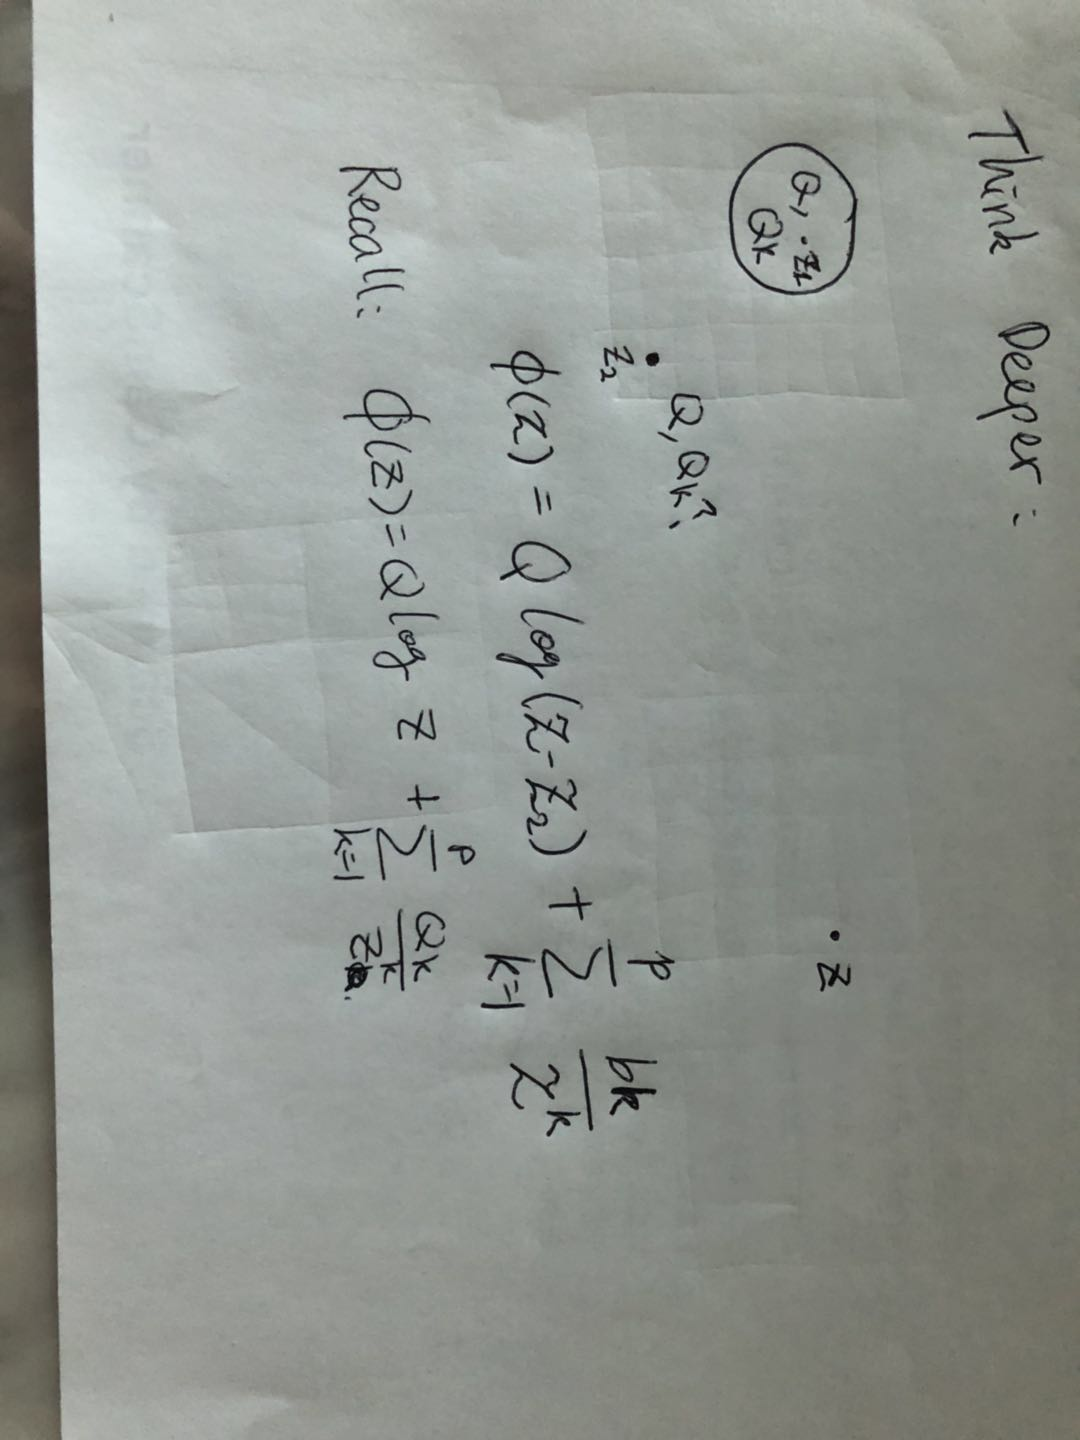 Think Deeper:
Q, · z₁
Qk
· z
· Q, Qk?
z₂
ϕ(z) = Q log(z-z₂) + ∑_{k=1}^{p} bk/z^k
Recall: ϕ(z) = Q log z + ∑_{k=1}^{p} Qk/z^k.